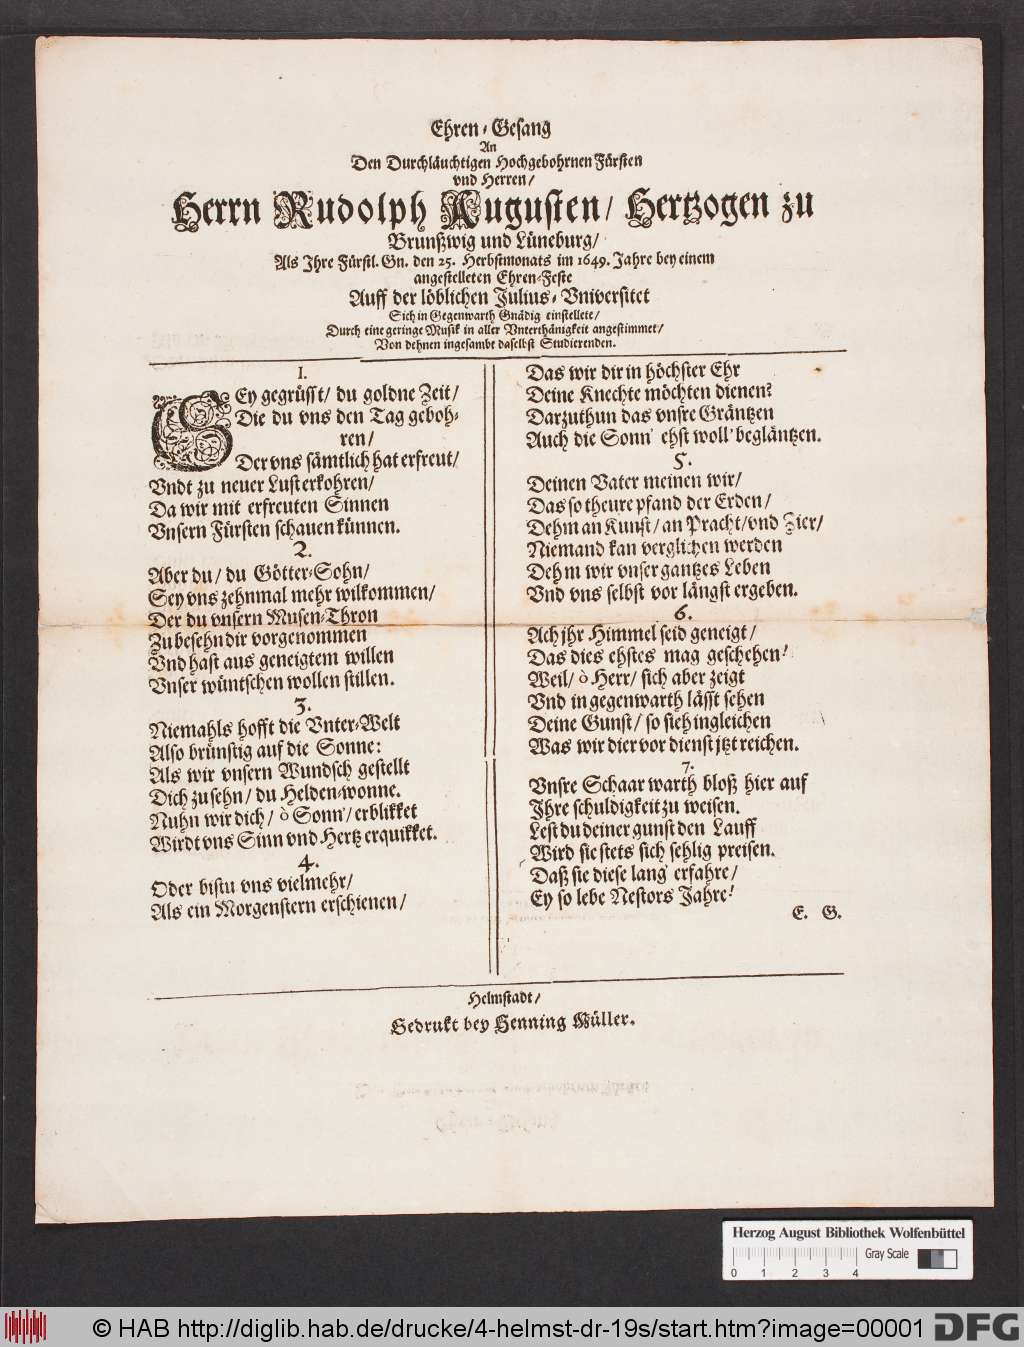 Ehren-Gesang
An
Den Durchläuchtigen Hochgebohrnen Fürsten
vnd Herren/
Herrn Rudolph Augusten/ Hertzogen zu
Brunßwig und Lüneburg/
Als Ihre Fürstl. Gn. den 25. Herbstmonats im 1649. Jahre bey einem
angestelleten Ehren-Feste
Auff der löblichen Julius-Vniversitet
Sich in Gegenwarth Gnädig einstellete/
Durch eine geringe Musik in aller Vnterthänigkeit angestimmet/
Von dehnen ingesambt daselbst Studierenden.
1.
SEy gegrüsst/ du goldne Zeit/
Die du vns den Tag geboh-
ren/
Der vns sämtlich hat erfreut/
Vndt zu neuer Lust erkohren/
Da wir mit erfreuten Sinnen
Vnsern Fürsten schauen künnen.
2.
Aber du/ du Götter-Sohn/
Sey vns zehnmal mehr wilkommen/
Der du vnsern Musen-Thron
Zu besehn dir vorgenommen
Vnd hast aus geneigtem willen
Vnser wüntschen wollen stillen.
3.
Niemahls hofft die Vnter-Welt
Also brünstig auf die Sonne:
Als wir vnsern Wundsch gestellt
Dich zu sehn/ du Helden-wonne.
Nuhn wir dich/ ò Sonn'/ erblikket
Wirdt vns Sinn vnd Hertz erquikket.
4.
Oder bistu vns vielmehr/
Als ein Morgenstern erschienen/
Das wir dir in höchster Ehr
Deine Knechte möchten dienen?
Darzuthun das vnsre Gräntzen
Auch die Sonn' ehst woll' begläntzen.
5.
Deinen Vater meinen wir/
Das so theure pfand der Erden/
Dehm an Kunst/ an Pracht/ vnd Zier/
Niemand kan verglichen werden
Dehm wir vnser gantzes Leben
Vnd vns selbst vor längst ergeben.
6.
Ach jhr Himmel seid geneigt/
Das dies ehstes mag geschehen!
Weil/ ò Herr/ sich aber zeigt
Vnd in gegenwarth lässt sehen
Deine Gunst/ so sieh ingleichen
Was wir dier vor dienst jtzt reichen.
7.
Vnsre Schaar warth bloß hier auf
Ihre schuldigkeit zu weisen.
Lest du deiner gunst den Lauff
Wird sie stets sich sehlig preisen.
Daß sie diese lang' erfahre/
Ey so lebe Nestors Jahre!
E. G.
Helmstadt/
Gedrukt bey Henning Müller.
Herzog August Bibliothek Wolfenbüttel
Gray Scale
0 1 2 3 4
© HAB http://diglib.hab.de/drucke/4-helmst-dr-19s/start.htm?image=00001 DFG